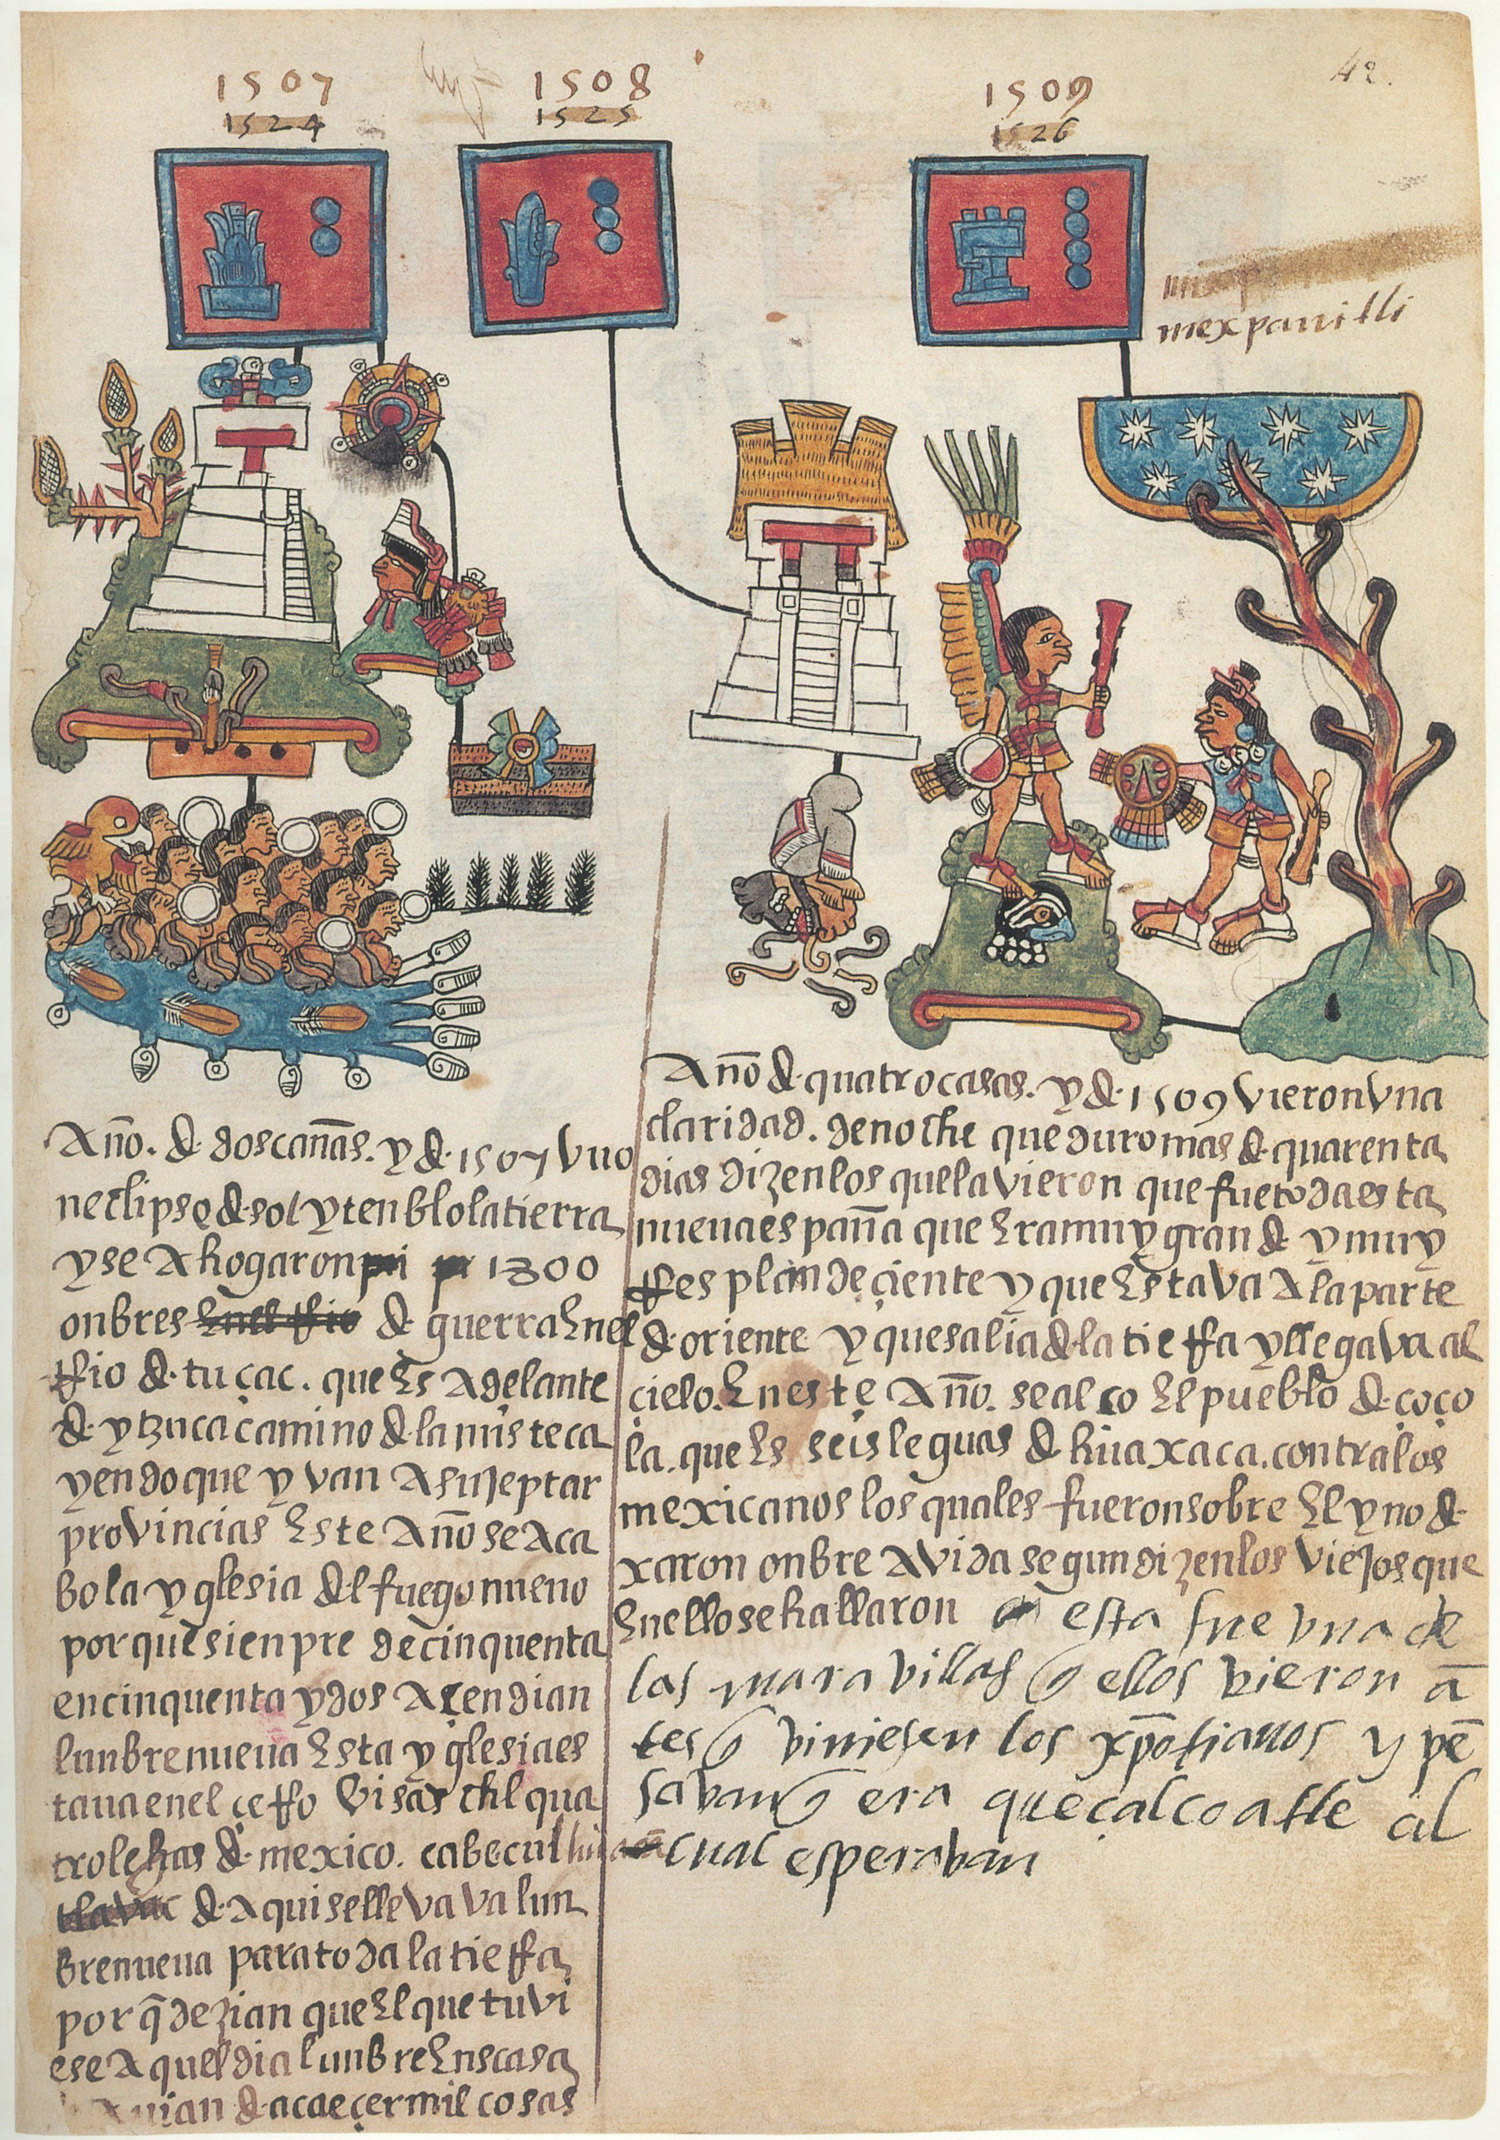 42.
1507
1524
1508
1525
1509
1526
mexpanilli
Año. d. dos cañas. y d. 1507 vuo
neclipse d. sol y tenblo la tierra
y se Ahogaron 1300
onbres d guerra En el
rrio d. tuçac. que Es Adelante
d. ytzuca camino d la misteca
yendo que yvan A sujeptar
provincias Este Año se Aca
bo la yglesia dl fuego nueno
por que sienpre de cinquenta
en cinquenta y dos Açendian
lunbre nueua Esta yglesia es
taua en el çerro visachtl qua
tro leguas d. mexico. cabe culhuacan
d. Aqui se llevava lun
bre nueua para toda la tierra
por q̄ dezian que El que tuvi
ese Aquel dia lunbre En su casa
Avian d. acaeçer mil cosas
Año d. quatro casas. y d. 1509 vieron vna
claridad. de noche que duro mas d. quarenta
dias dizen los que la vieron que fue toda esta
nueua españa que Era muy grand y muy
rresplandeçiente y que Estava A la parte
d. oriente y que salia d. la tierra y llegava al
çielo. En este Año. se alço El pueblo d. çoço
la. que Es seis leguas d huaxaca. contra los
mexicanos los quales fueron sobre El y no d.
xaron onbre A vida segun dizen los viejos que
En ello se hallaron esta fue vna de
las maravillas q̄ ellos vieron ā
tes q̄ viniesen los xp̄otianos y pē
savan q̄ era queçalcoatle al
cual esperavan